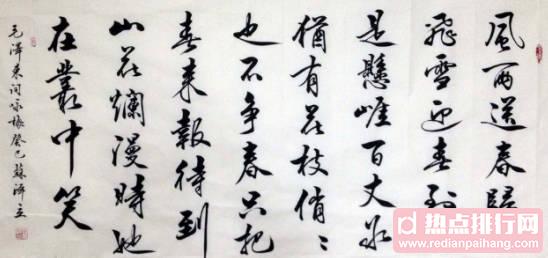 風雨送春歸
飛雪迎春到
是懸崖百丈冰
猶有花枝俏〻
也不争春只把
春来報待到
山花爛漫時她
在叢中笑
毛澤東词咏梅癸巳蘇澤立
热点排行网
www.redianpaihang.com